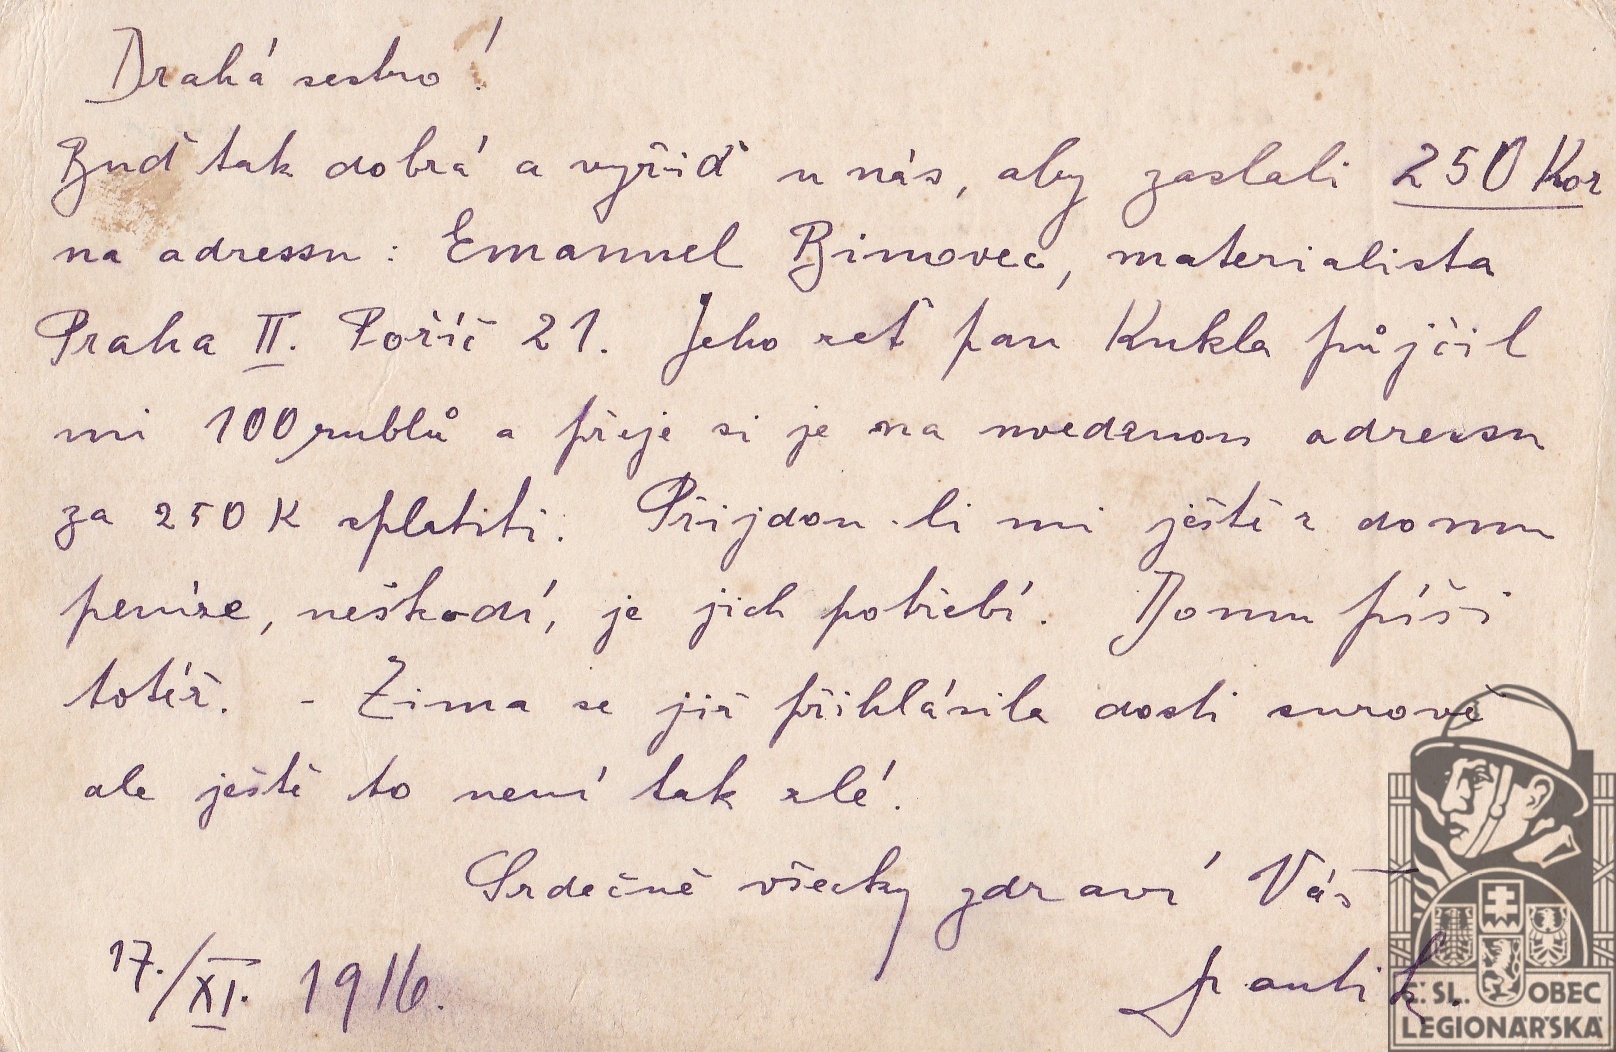 Drahá sestro!
Buď tak dobrá a vyřiď u nás, aby zaslali 250 Kor
na adressu: Emanuel Bimovec, materialista
Praha II. Poříč 21. Jeho zeť pan Kukla půjčil
mi 100 rublů a přeje si je na uvedenou adressu
za 250 K splatiti. Přijdou-li mi ještě z domu
peníze, neškodí, je jich potřebí. Domu píši
totéž. - Zima se již přihlásila dosti surově
ale ještě to není tak zlé.
Srdečně všecky zdraví Váš
17./XI. 1916. Frantík.
Č.SL. OBEC
LEGIONÁŘSKÁ